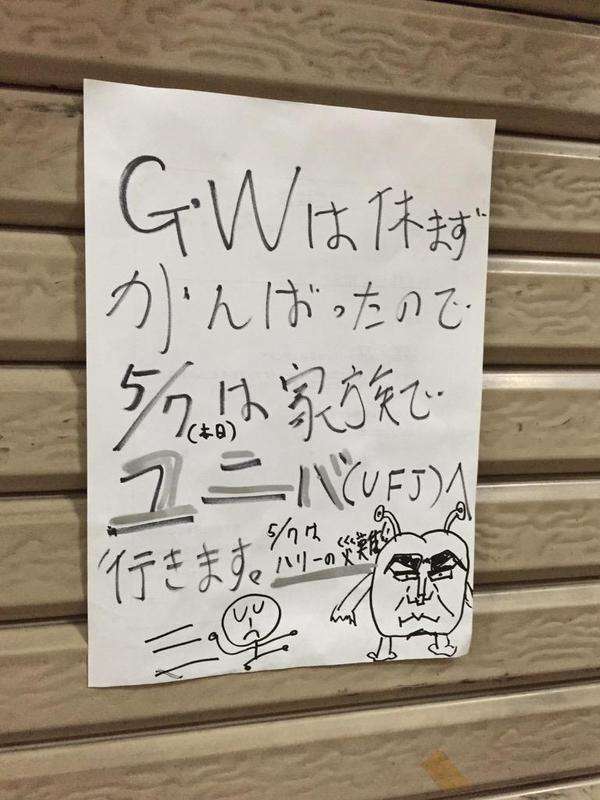 G.Wは休まず
がんばったので
5/7は家族で
(本日)
ユニバ(UFJ)へ
行きます。
5/7は
ハリーの災難